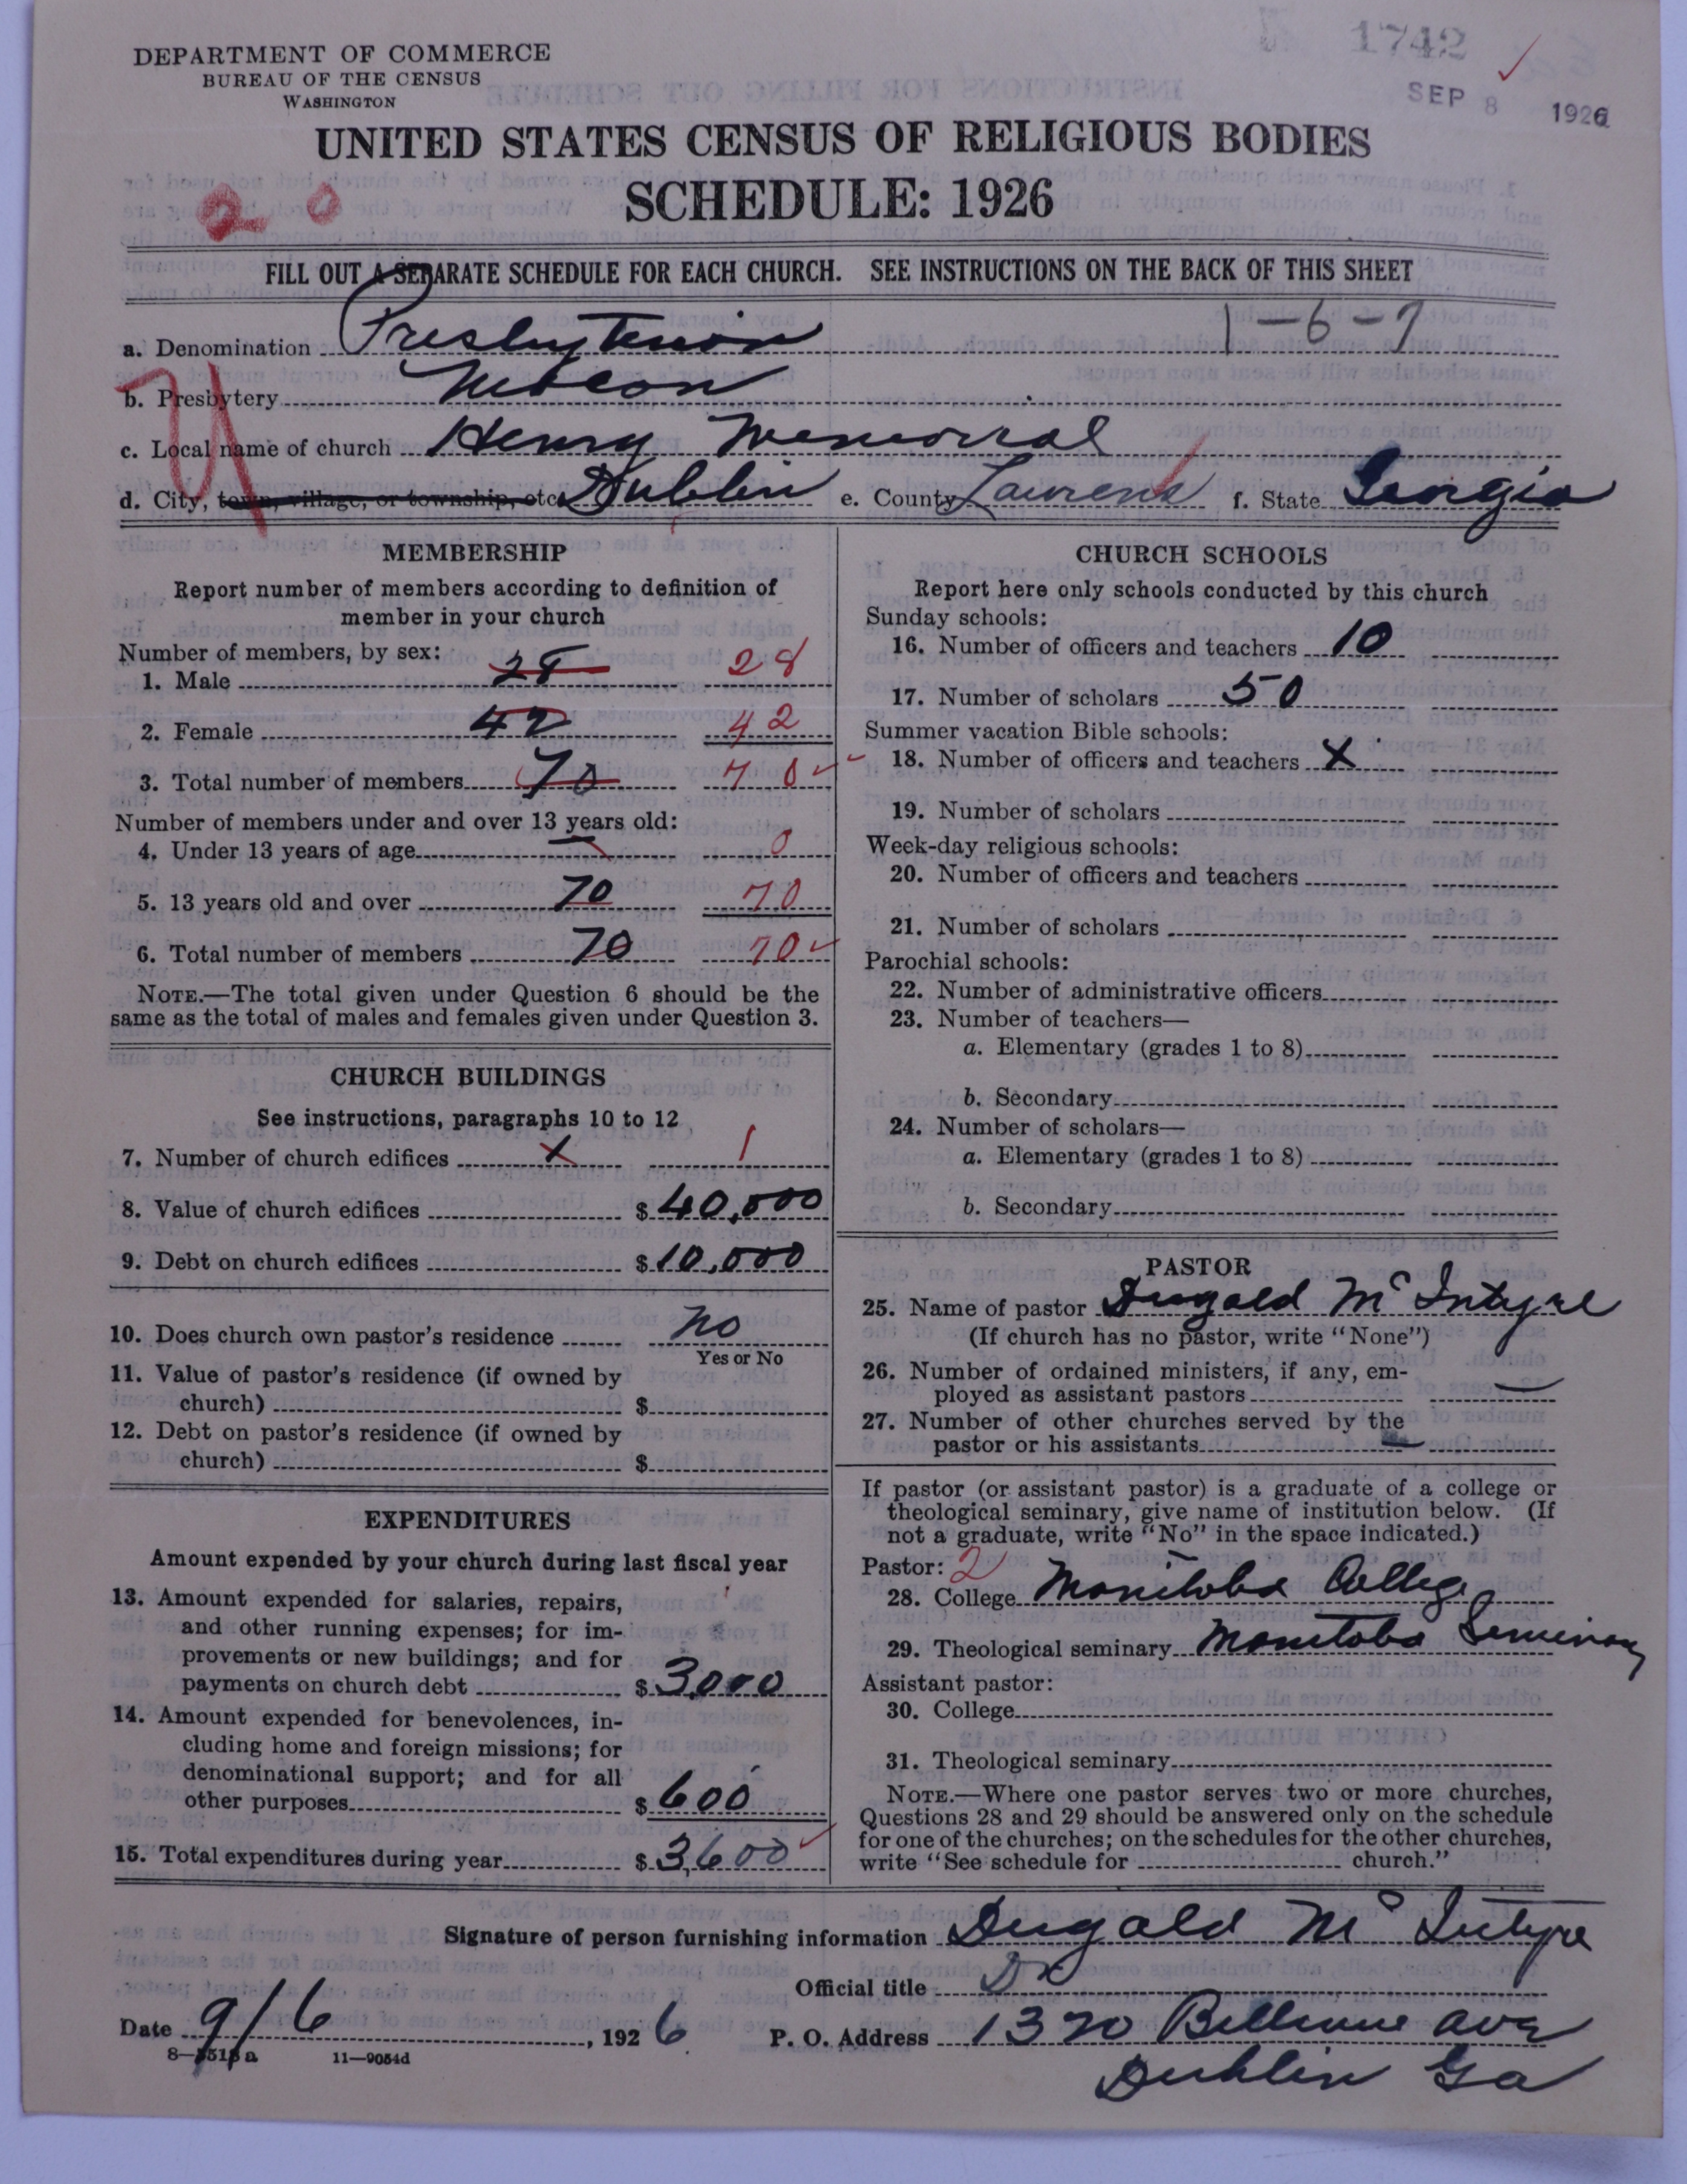 DEPARTMENT OF COMMERCE
BUREAU OF THE CENSUS
WASHINGTON
1742
SEP 8 1926
UNITED STATES CENSUS OF RELIGIOUS BODIES
SCHEDULE: 1926
2 0
FILL OUT A SEPARATE SCHEDULE FOR EACH CHURCH. SEE INSTRUCTIONS ON THE BACK OF THIS SHEET
1-6-7
a. Denomination Presbyterian
b. Presbytery Macon
c. Local name of church Henry Memorial
d. City, town, village, or township, etc. Dublin e. County Laurens f. State Georgia
MEMBERSHIP
Report number of members according to definition of
member in your church
Number of members, by sex:
1. Male 28 28
2. Female 42 42
3. Total number of members 70 70
Number of members under and over 13 years old:
4. Under 13 years of age — 0
5. 13 years old and over 70 70
6. Total number of members 70 70
NOTE.—The total given under Question 6 should be the
same as the total of males and females given under Question 3.
CHURCH BUILDINGS
See instructions, paragraphs 10 to 12
7. Number of church edifices x 1
8. Value of church edifices $ 40,000
9. Debt on church edifices $ 10,000
10. Does church own pastor's residence no
Yes or No
11. Value of pastor's residence (if owned by
church) $
12. Debt on pastor's residence (if owned by
church) $
EXPENDITURES
Amount expended by your church during last fiscal year
13. Amount expended for salaries, repairs,
and other running expenses; for im-
provements or new buildings; and for
payments on church debt $ 3,000
14. Amount expended for benevolences, in-
cluding home and foreign missions; for
denominational support; and for all
other purposes $ 600
15. Total expenditures during year $ 3,600
CHURCH SCHOOLS
Report here only schools conducted by this church
Sunday schools:
16. Number of officers and teachers 10
17. Number of scholars 50
Summer vacation Bible schools:
18. Number of officers and teachers x
19. Number of scholars
Week-day religious schools:
20. Number of officers and teachers
21. Number of scholars
Parochial schools:
22. Number of administrative officers
23. Number of teachers—
a. Elementary (grades 1 to 8)
b. Secondary
24. Number of scholars—
a. Elementary (grades 1 to 8)
b. Secondary
PASTOR
25. Name of pastor Dugald McIntyre
(If church has no pastor, write "None")
26. Number of ordained ministers, if any, em-
ployed as assistant pastors —
27. Number of other churches served by the
pastor or his assistants —
If pastor (or assistant pastor) is a graduate of a college or
theological seminary, give name of institution below. (If
not a graduate, write "No" in the space indicated.)
Pastor: 2
28. College Manitoba College
29. Theological seminary Manitoba Seminary
Assistant pastor:
30. College
31. Theological seminary
NOTE.—Where one pastor serves two or more churches,
Questions 28 and 29 should be answered only on the schedule
for one of the churches; on the schedules for the other churches,
write "See schedule for church."
Signature of person furnishing information Dugald McIntyre
Official title Dr
Date 9/6, 1926 P. O. Address 1320 Bellevue Ave
8—5518 a 11—9054d
Dublin Ga